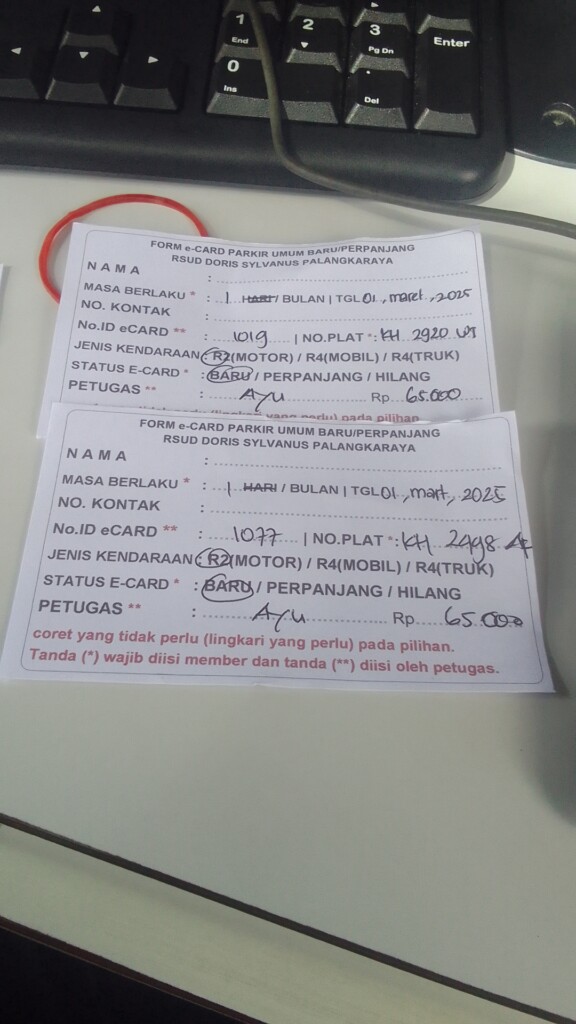 1
End
2
3
Pg Dn
Enter
0
Ins
.
Del
FORM e-CARD PARKIR UMUM BARU/PERPANJANG
RSUD DORIS SYLVANUS PALANGKARAYA
N A M A :
MASA BERLAKU * : 1 HARI / BULAN | TGL 01, maret, 2025
NO. KONTAK :
No.ID eCARD ** : 1019 | NO.PLAT * : KH 2920 WT
JENIS KENDARAAN : R2(MOTOR) / R4(MOBIL) / R4(TRUK)
STATUS E-CARD * : BARU / PERPANJANG / HILANG
PETUGAS ** : Ayu Rp 65.000
FORM e-CARD PARKIR UMUM BARU/PERPANJANG
RSUD DORIS SYLVANUS PALANGKARAYA
N A M A :
MASA BERLAKU * : 1 HARI / BULAN | TGL 01, mart, 2025
NO. KONTAK :
No.ID eCARD ** : 1077 | NO.PLAT * : KH 2498 AF
JENIS KENDARAAN : R2(MOTOR) / R4(MOBIL) / R4(TRUK)
STATUS E-CARD * : BARU / PERPANJANG / HILANG
PETUGAS ** : Ayu Rp 65.000
coret yang tidak perlu (lingkari yang perlu) pada pilihan.
Tanda (*) wajib diisi member dan tanda (**) diisi oleh petugas.